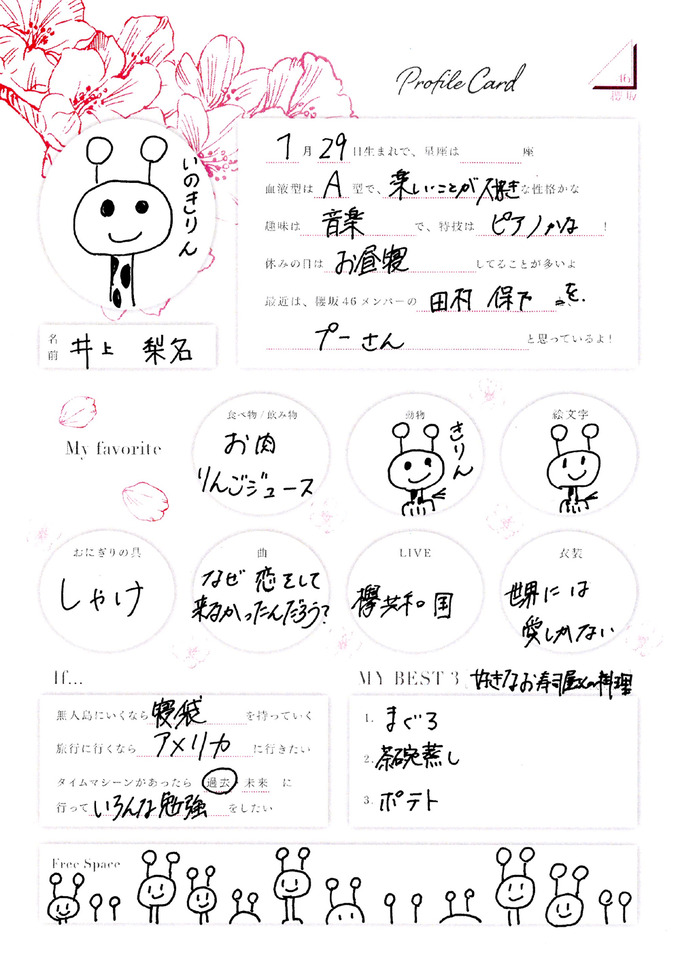 Profile Card
46
いのきりん
1月29日生まれで、星座は 座
血液型はA型で、楽しいことが大好きな性格かな
趣味は音楽で、特技はピアノかな!
休みの日はお昼寝してることが多いよ
最近は、櫻坂46メンバーの田村 保乃を、
プーさんと思っているよ!
名前 井上 梨名
My favorite
食べ物/飲み物
お肉
りんごジュース
動物
きりん
絵文字
おにぎりの具
しゃけ
曲
なぜ 恋をして
来なかったんだろう?
LIVE
欅共和国
衣装
世界には
愛しかない
If...
無人島にいくなら寝袋を持っていく
旅行に行くならアメリカに行きたい
タイムマシーンがあったら 過去・未来 に
行っていろんな勉強をしたい
MY BEST 3 好きなお寿司屋さんの料理
1. まぐろ
2. 茶碗蒸し
3. ポテト
Free Space